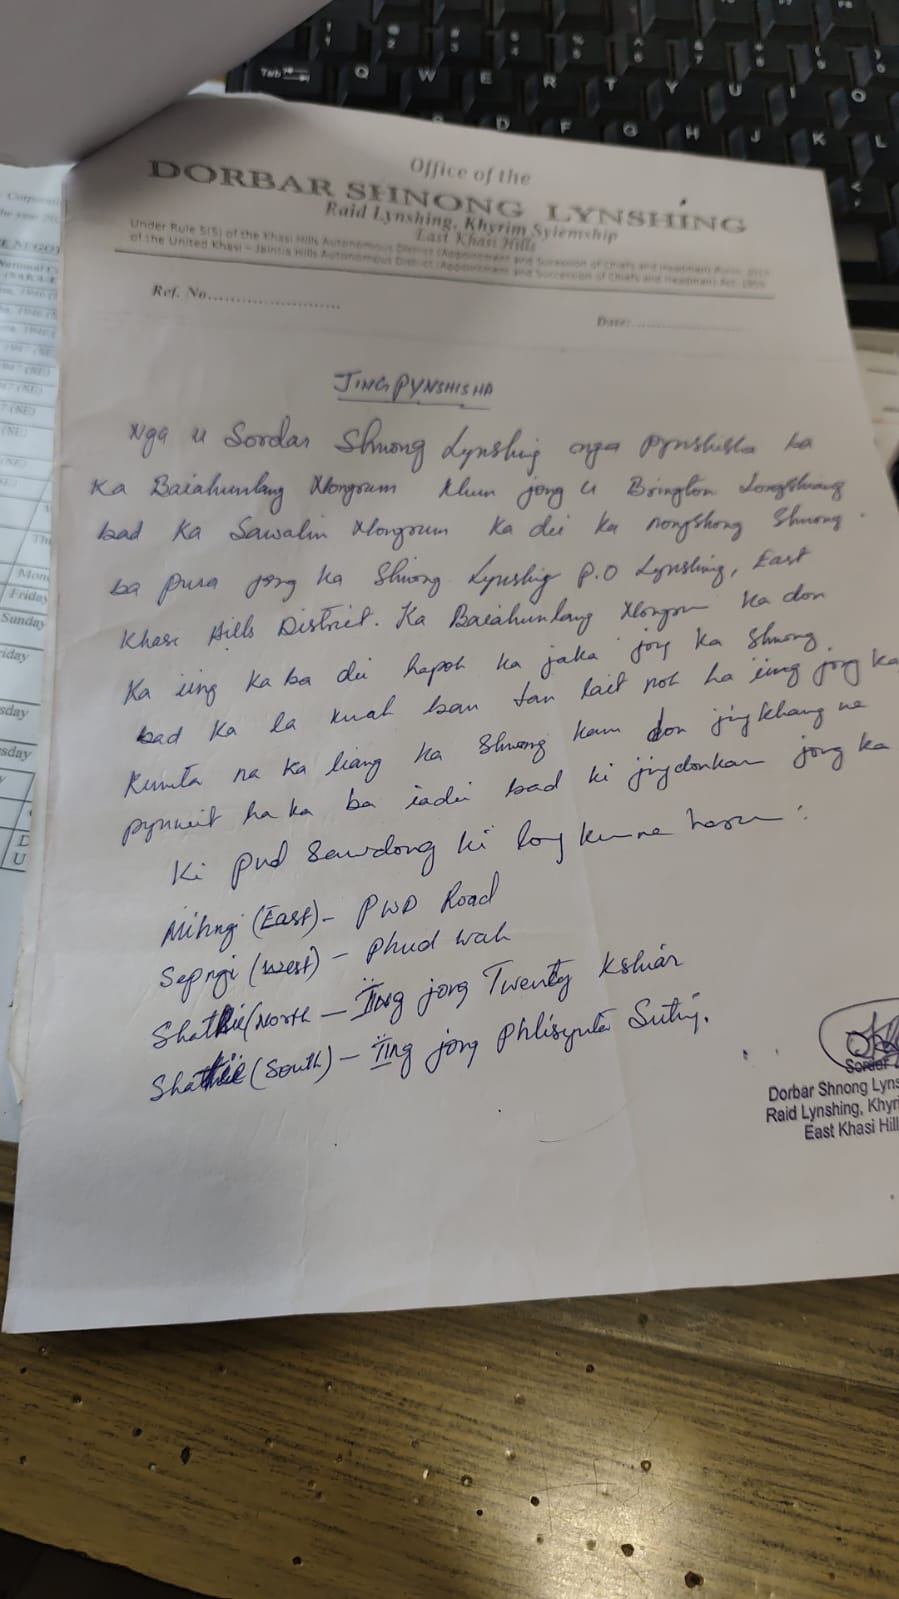 Office of the
DORBAR SHNONG LYNSHING
Raid Lynshing, Khyrim Syiemship
East Khasi Hills
Under Rule 5(5) of the Khasi Hills Autonomous District (Appointment and Succession of Chiefs and Headmen) Rules,
of the United Khasi – Jaintia Hills Autonomous District (Appointment and Succession of Chiefs and Headmen) Act, 1959
Ref. No........................
Date:........................
JINGPYNSHISHA
Nga u Sordar Shnong Lynshing nga pynshisha ba
Ka Baiahunlang Nongrum khun jong u Brington
bad Ka Sawalin Nongrum ka dei ka nongshong Shnong
ba pura jong ka Shnong Lynshing P.O Lynshing, East
Khasi Hills District. Ka Baiahunlang Nongrum ka don
Ka iing ka ba dei hapoh ka jaka jong ka Shnong
bad ka la kwah ban tan lait noh ha iing jong ka
Kumta na ka liang ka Shnong kam don jingkhang ne
pynwit ha ka ba iadei bad ki jingdonkam jong ka
Ki pud Sawdong ki long kumne harum:
Mihngi (East) - PWD Road
Sepngi (West) - Phud Wah
(North - Ïing jong Twenty Kshiar
(South) - Ïing jong Suting.
Dorbar Shnong
Raid Lynshing,
East Khasi
Tab Q W E R T Y U I O
D F G H J K L
Monday
Friday
Sunday